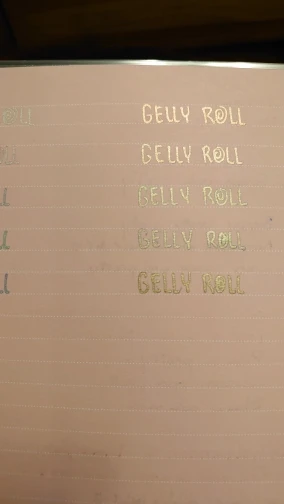 ROLL GELLY ROLL
GELLY ROLL
GELLY ROLL
GELLY ROLL
GELLY ROLL